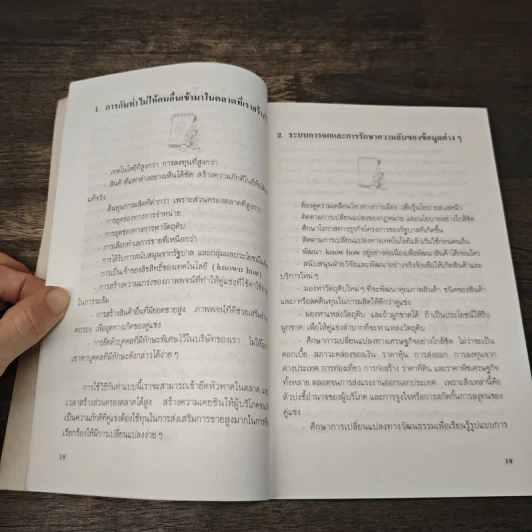 1. การกันท่าไม่ให้คนอื่นเข้ามาในตลาดที่เราสร้าง
เทคโนโลยีที่สูงกว่า การลงทุนที่สูงกว่า
- สินค้าที่แตกต่างอย่างเห็นได้ชัด สร้างความภักดีในยี่ห้อ
แท้จริง
- ต้นทุนการผลิตที่ต่ำกว่า เพราะส่วนครองตลาดที่สูงกว่า
- การอุดรูทางการจำหน่าย
- การอุดรูทางการหาวัตถุดิบ
- การเลือกทำเลการขายที่เหนือกว่า
- การได้รับการสนับสนุนจากรัฐบาล และกลุ่มผลประโยชน์
- การเป็นเจ้าของลิขสิทธิ์ของเทคโนโลยี (known how)
- การสร้างความแกร่งของภาพพจน์ที่ทำให้คู่แข่งที่ใช้ค่าใช้จ่าย
ในการจะตัด
- การสร้างสินค้าอื่นที่มียอดขายสูง ภาพพจน์ที่ดีช่วยเสริม
ต่อรอง เพื่ออุดทางเกิดของคู่แข่ง
- การยึดตัวบุคคลที่มีทักษะพิเศษไว้ในบริษัทของเรา ไม่ให้
เขาหาบุคคลที่มีทักษะดังกล่าวได้ง่าย ๆ
การใช้วิธีกันท่าแบบนี้เราจะสามารถเข้ายึดหัวหาดในตลาด และ
เวลาสร้างส่วนครองตลาดได้สูง สร้างความเคยชินให้ผู้บริโภค
เป็นความภักดีที่คู่แข่งต้องใช้ทุนในการส่งเสริมการขายสูงมากในการ
เรียกร้องให้มีการเปลี่ยนแปลงง่าย ๆ
18
2. ระบบการจดและการรักษาความลับของข้อมูลต่าง ๆ
- ต้องดูความเคลื่อนไหวทางการเมือง เพื่อรู้นโยบายล่วงหน้า
- ติดตามการเปลี่ยนแปลงของกฎหมาย และนโยบายอย่างใกล้ชิด
- ศึกษาโอกาสทางธุรกิจโครงการของรัฐบาลที่เกิดขึ้น
- ติดตามการเปลี่ยนแปลงทางเทคโนโลยีแล้วเริ่มใช้ก่อนคนอื่น
- พัฒนา know how อยู่อย่างต่อเนื่องเพื่อพัฒนาสินค้าได้ก่อนใคร
- สนับสนุนฝ่ายวิจัยและพัฒนาอย่างจริงจังเพื่อให้เกิดสินค้าและ
บริการใหม่ ๆ
- มองหาวัตถุดิบใหม่ ๆ ที่จะพัฒนาคุณภาพสินค้า ชนิดของสินค้า
และ/หรือลดต้นทุนในการผลิตให้ดีกว่าคู่แข่ง
- มองหาแหล่งวัตถุดิบ และถ้าผูกขาดได้ ถ้าเป็นประโยชน์ให้รีบ
ผูกขาด เพื่อให้คู่แข่งลำบากที่จะหาแหล่งวัตถุดิบ
- ศึกษาการเปลี่ยนแปลงทางเศรษฐกิจอย่างใกล้ชิด ไม่ว่าจะเป็น
ดอกเบี้ย สภาวะคล่องของเงิน ราคาหุ้น การส่งออก การลงทุนจาก
ต่างประเทศ การท่องเที่ยว การก่อสร้าง ราคาที่ดิน และราคาพืชเศรษฐกิจ
ทั้งหลาย ตลอดจนการส่งแรงงานออกนอกประเทศ เพราะสิ่งเหล่านี้คือ
ตัวบ่งชี้อำนาจของผู้บริโภค และการจูงใจหรือการสกัดกั้นการลงทุนของ
คู่แข่ง
- ศึกษาการเปลี่ยนแปลงทางวัฒนธรรมเพื่อเรียนรู้รูปแบบการ
19